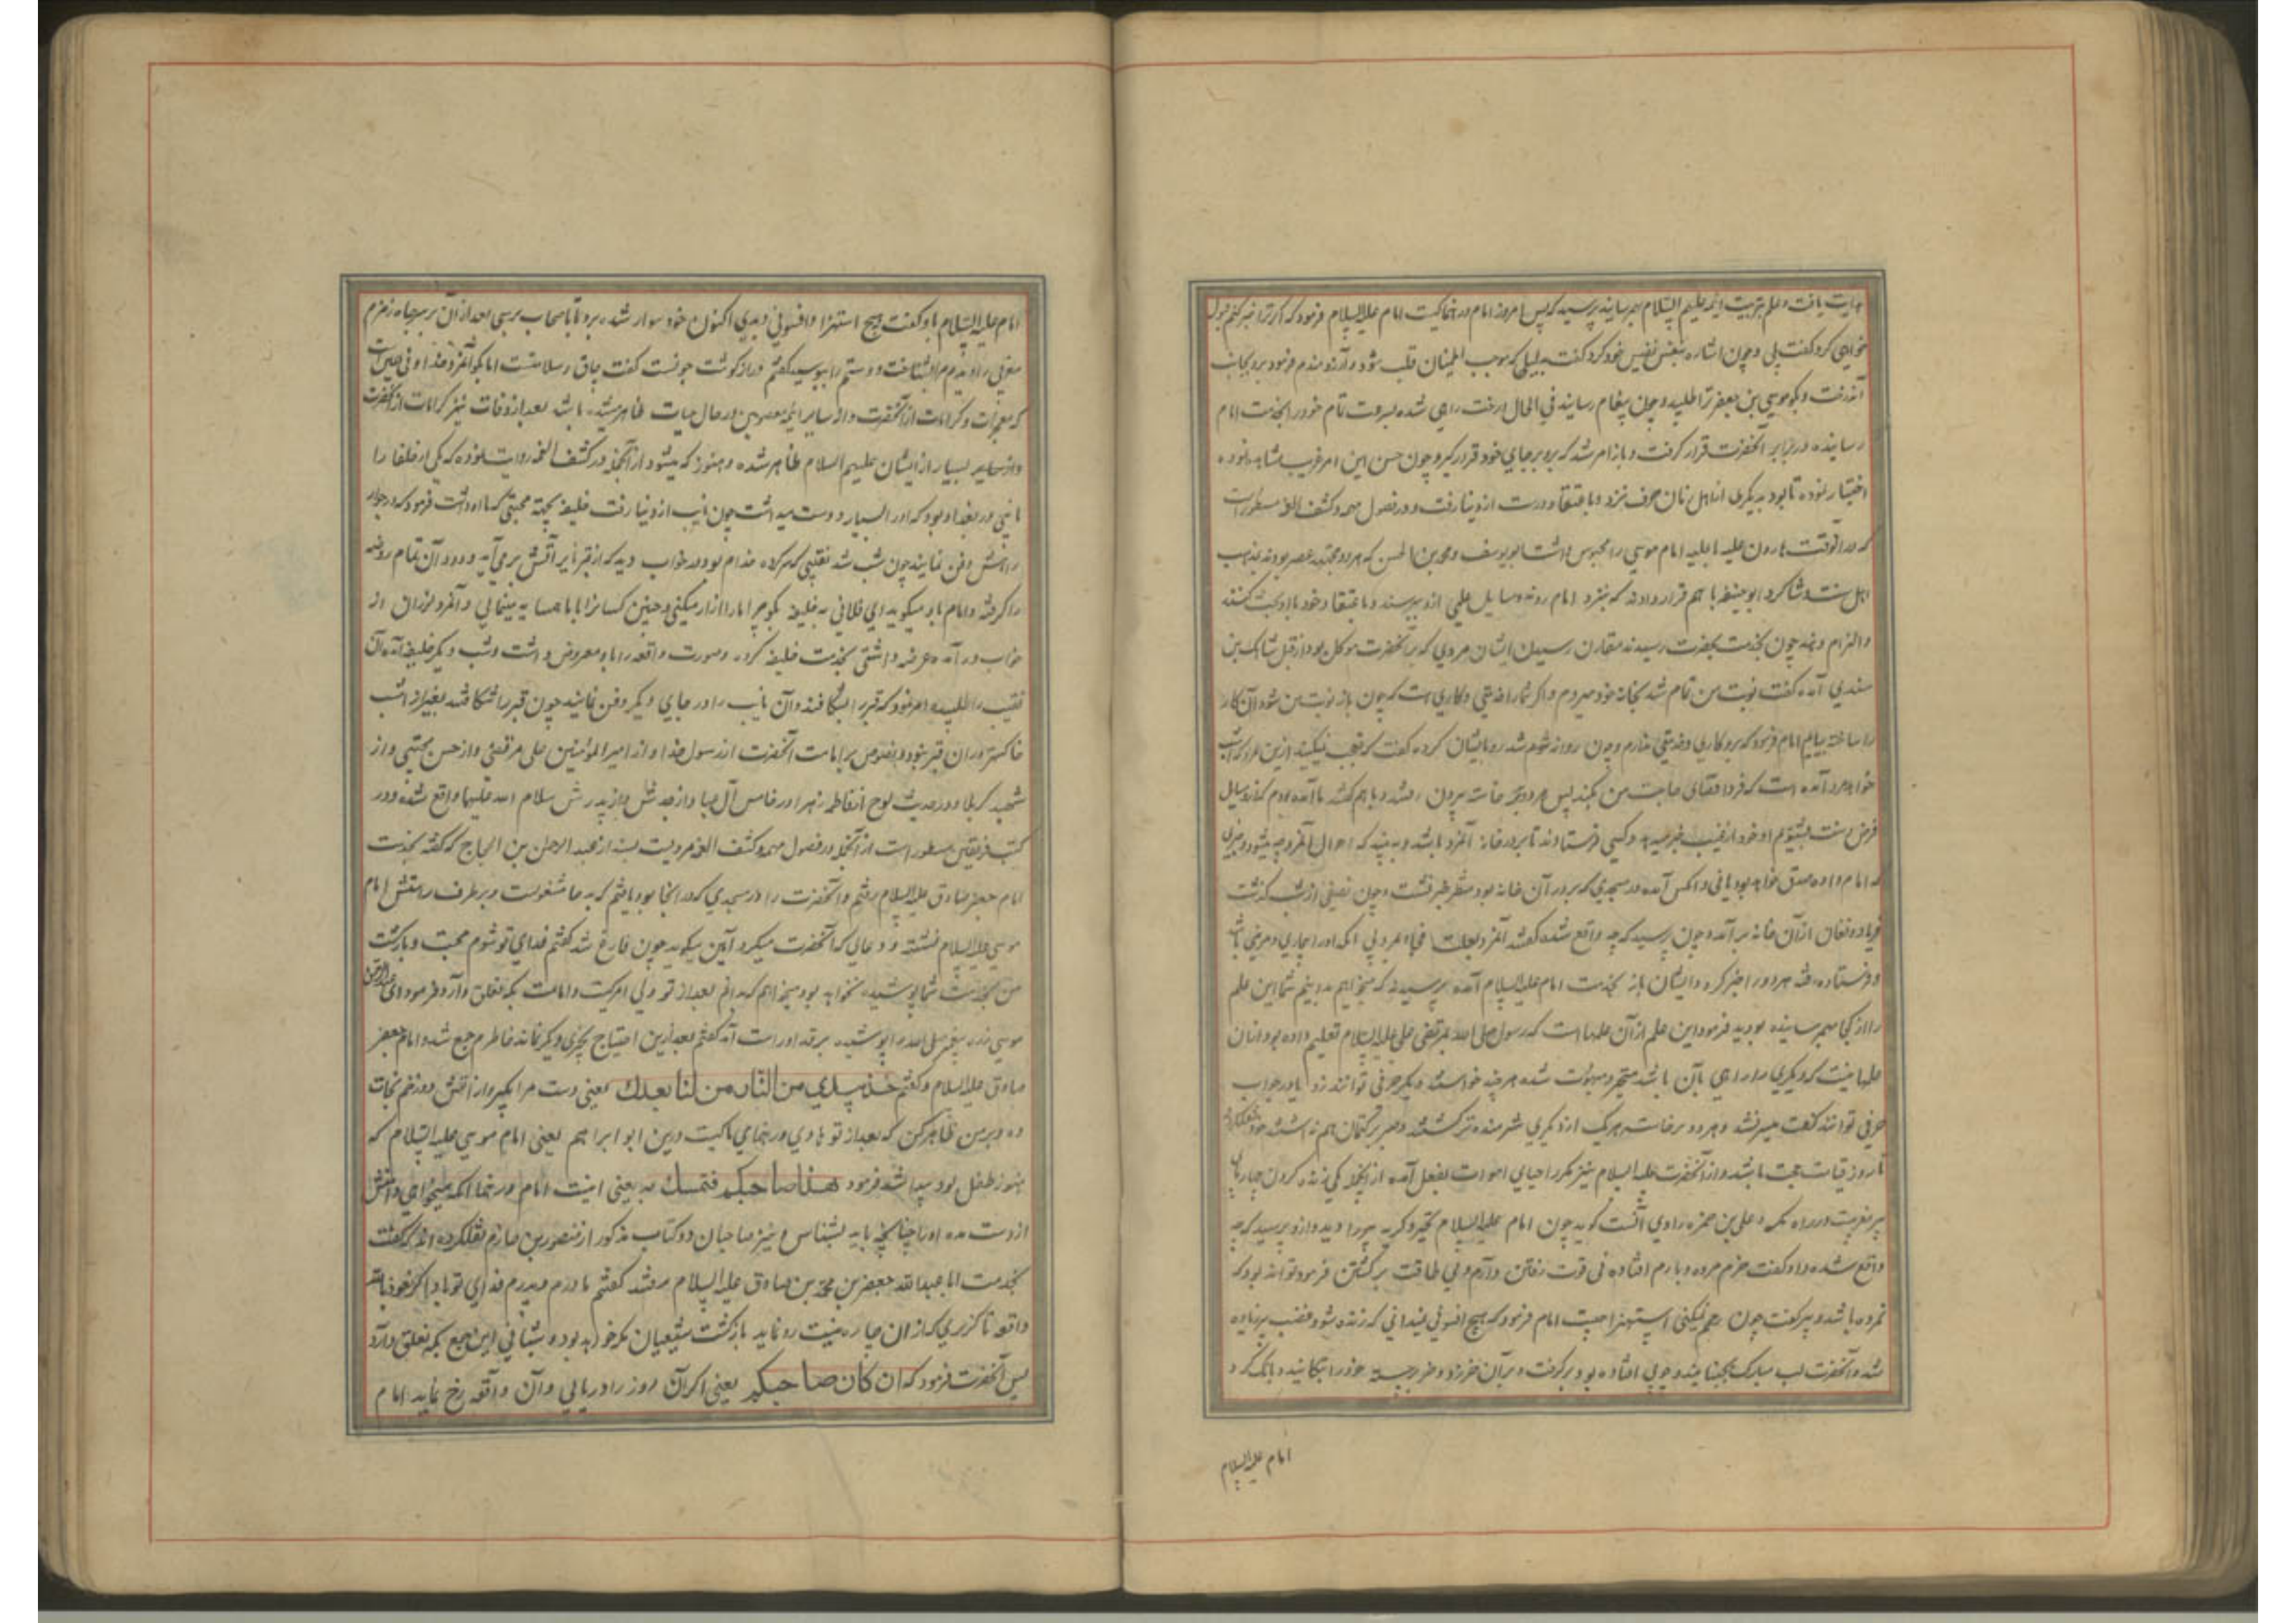 هدایت یافت و علم بتربیت ائمه علیهم السلام بهم رسانید پرسید که پس امروز امام و رهنما کیست امام علیه السلام فرمود که اگر ترا خبر کنم قبول
خواهی کرد گفت بلی و چون اشاره بنفس نفیس خود کرد گفت بدلیلی که موجب اطمینان قلب شود و آرزومندم فرمود برو بجانب
آندرخت و بگو موسی بن جعفر ترا طلبیده چون پیغام رسانید فی الحال درخت راهی شده بسرعت تمام خود را بخدمت امام
رسانیده در برابر آنحضرت قرار گرفت و باز امر شد که برو بر جای خود قرار گیر و چون حسن این امر غریب مشاهده نموده
اختیار نموده تا بود بدیگری از اهل زبان حرف نزد و باعتقاد درست از دنیا رفت و در فصول مهمه و کشف الغمه مسطور است
که در آنوقت هارون علیه ما علیه امام موسی را محبوس داشت ابو یوسف و محمد بن الحسن که هر دو مجتهد عصر بودند بمذهب
اهل سنت و شاگرد ابو حنیفه با هم قرار دادند که بنزد امام روند و مسایل علمی ازو بپرسند و باعتقاد خود با او بحث کنند
و الزام دهند چون بخدمت حضرت رسیدند مقارن رسیدن ایشان مردی که بر آنحضرت موکل بود از قبل شاهک بن
سندی آمده گفت نوبت من تمام شد بخانه خود میروم و اگر شما را خدمتی و کاری است که چون باز نوبت من شود آن کار
را ساخته بیایم امام فرمود که برو کاری و خدمتی ندارم و چون روانه شد رو بایشان کرده گفت که تعجب نمیکنید ازین مرد که امشب
خواهد مرد آمده است که فردا قضای حاجت من بکند پس هر دو برخاسته بیرون رفتند و با هم گفتند ما آمده بودیم که ازو مسایل
فرض و سنت بشنویم او خود از غیب خبر میدهد و کسی فرستادند تا بر در خانه آنمرد باشد و ببیند که احوال آنمرد چه میشود و خبری
که امام داده صدق خواهد بود یا نی و آنکس آمده در مسجدی که برابر در آن خانه بود منتظر خبر نشست و چون نصفی از شب گذشت
فریاد و فغان از آن خانه برآمد و چون پرسید که چه واقع شده گفتند آنمرد بعلت فجاه مرد بی آنکه او را بیماری و مرضی باشد
و فرستاده رفته هر دو را خبر کرد و ایشان باز بخدمت امام علیه السلام آمده پرسیدند که میخواهیم بدانیم شما این علم
را از کجا بهم رسانیده بودید فرمود این علم از آن علمهاست که رسول صلی الله بمرتضی علی علیه السلام تعلیم داده بود و از آن
علمها نیست که دیگری را راهی بآن باشد متحیر و مبهوت شده هر چند خواستند دیگر حرفی توانند زد یا در جواب
حرفی توانند گفت میسر نشد و هر دو برخاسته هر یک از دیگری شرمنده تر گشتند و صبر بر کتمان هم نداشتند
تا روز قیامت حجت باشد و از آنحضرت علیه السلام نیز مکرر احیای اموات بفعل آمده از آنجمله یکی زنده کردن چارپای
پیر مغربیست در راه مکه و علی بن حمزه راوی آنست گوید چون امام علیه السلام تحیر و گریه پیر را دید و ازو پرسید که چه
واقع شده و او گفت خرم مرده و بارم افتاده نی قوت رفتن دارم و نی طاقت برگشتن فرمود تواند بود که
نمرده باشد و پیر گفت چون رحم نمیکنی استهزا چیست امام فرمود که هیچ افسونی نمیدانی که زنده شود غضب پیر زیاده
شد و آنحضرت لب مبارک بجنبانید و چوبی افتاده بود برگرفت و بر آن خر زد و خر برجسته خود را بتکانید و بانگ کرد
امام علیه السلام
امام علیه السلام باو گفت هیچ استهزا و افسونی دیدی اکنون خود سوار شده برو تا باصحاب برسی بعد از آن بر سر چاه زمزم
مغربی را دیدم مرا بشناخت و دستم را ببوسید گفتم درازگوشت چونست گفت چاق و سلامتست اما بگو آنمرد خدا
که معجزات و کرامات از آنحضرت و از سایر ائمه معصومین در حال حیات ظاهر میشده باشد بعد از وفات نیز کرامات از آنحضرت
و از سایر بسیار از ایشان علیهم السلام ظاهر شده و هنوز که میشود از آنجمله در کشف الغمه روایت نموده که یکی از خلفا را
نایبی در بغداد بود که او را بسیار دوست میداشت چون نایب از دنیا رفت خلیفه بجهة محبتی که با او داشت فرمود که در جوار
دفن نمایند چون شب شد نقیبی که سرکرده خدام بود در خواب دید که از قبر نایب آتش برمی آید و دود آن تمام روضه
را گرفته و امام باو میگوید ای فلانی بخلیفه بگو چرا ما را آزار میکنی و چنین کسان را با ما همسایه مینمایی و آنمرد لرزان از
خواب در آمده عرضه داشتی بخدمت خلیفه کرده و صورت واقعه را باو معروض داشت و شب دیگر خلیفه آمده آن
نقیب را طلبیده امر نمود که قبر را بشکافند و آن نایب را در جای دیگر دفن نمایند چون قبر را شکافتند بغیر از
خاکستر در آن قبر نبود و نصوص بر امامت آنحضرت از رسول خدا و از امیر المؤمنین علی مرتضی و از حسن مجتبی و از
شهید کربلا و در حدیث لوح از فاطمه زهرا و خامس آل عبا و از جدش و از پدرش سلام الله علیهما واقع شده و در
کتب فریقین مسطور است از آنجمله در فصول مهمه و کشف الغمه مرویست بسند از عبد الرحمن بن الحجاج که گفته بخدمت
امام جعفر صادق علیه السلام رفتم و آنحضرت را در مسجدی که در آنجا بود یافتم که بدعا مشغولست و بر طرف راستش امام
موسی علیه السلام نشسته و دعایی که آنحضرت میکرد آمین میگوید چون فارغ شد گفتم فدای تو شوم محبت و بازگشت
من بخدمت شما پوشیده نخواهد بود میخواهم که بدانم بعد از تو ولی امر کیست و امامت بکه تعلق دارد فرمود ای عبد الرحمن
موسی زره پیغمبر صلی الله را پوشیده بر قد او راست آمد گفتم بعد ازین احتیاج بچیزی دیگر نماند خاطرم جمع شد و امام جعفر
صادق علیه السلام و گفتم خذ بیدی من النار من لنا بعدك یعنی دست مرا بگیر و از آتش دوزخم نجات
ده و بر من ظاهر کن که بعد از تو هادی و رهنمای ما کیست درین ابو ابراهیم یعنی امام موسی علیه السلام که
هنوز طفل بود پیدا شد فرمود هذا صاحبکم فتمسك به یعنی اینست امام و رهنما آنکه میخواهی دامنش
از دست مده او را چنانچه باید بشناس و نیز صاحبان دو کتاب مذکور از منصور بن حازم نقل کرده اند که گفت
بخدمت ابا عبدالله جعفر بن محمد بن صادق علیه السلام رفتند گفتم مادرم و پدرم فدای تو باد اگر نعوذ بالله
واقعه ناگزیری که از آن چاره نیست رو نماید بازگشت شیعیان بکه خواهد بود و شبانی این جمع بکه تعلق دارد
پس آنحضرت فرمود که ان کان صاحبکم یعنی اگر آن روز را دریابی و آن واقعه رخ نماید امام